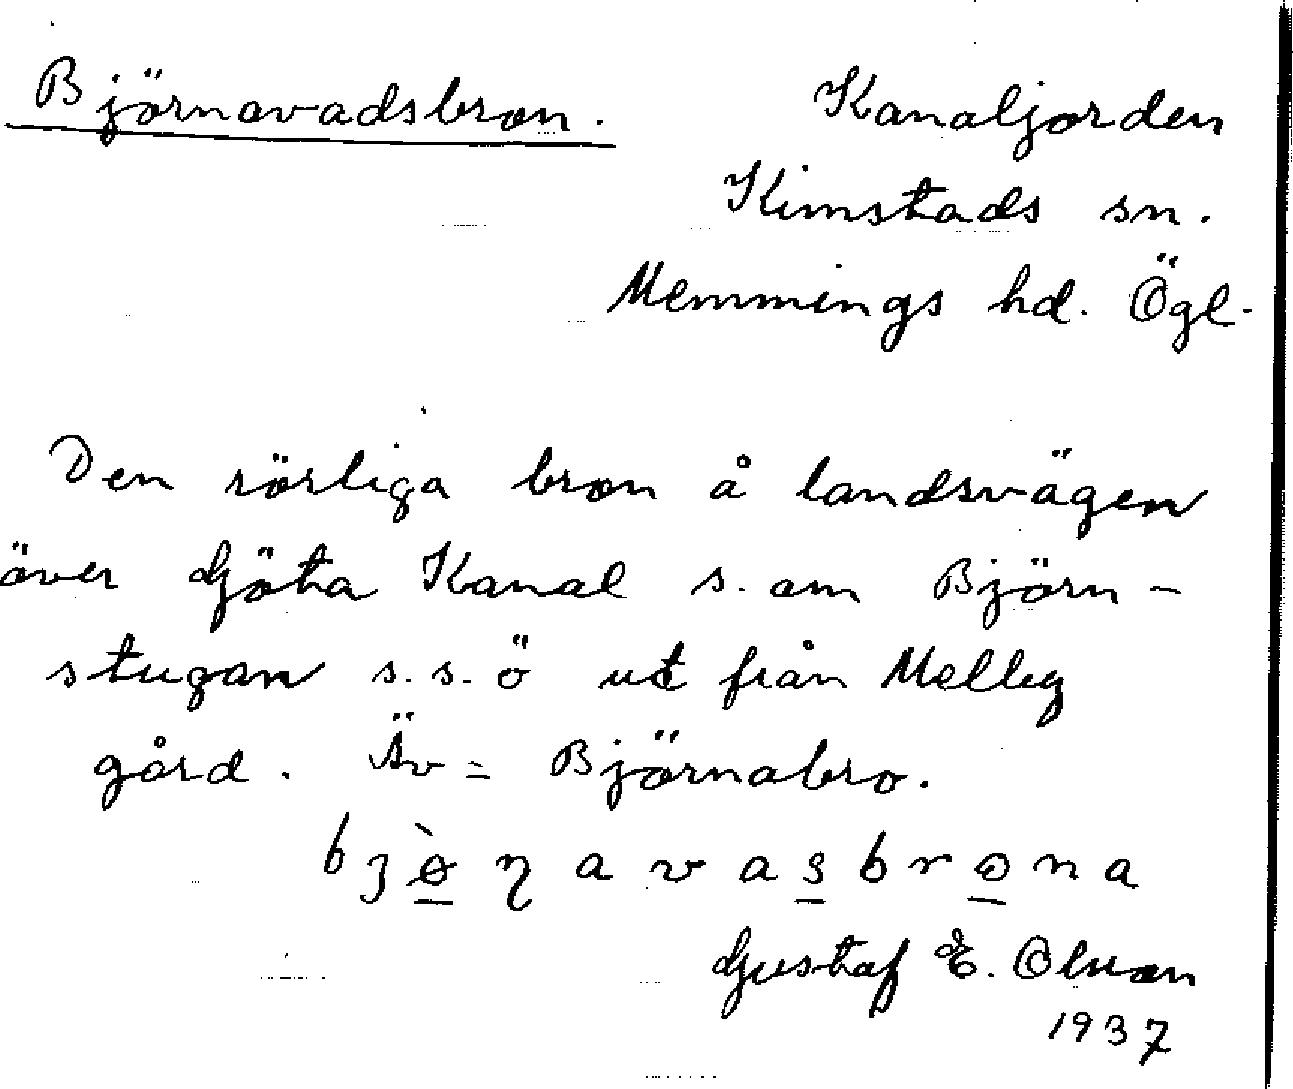 Björnavadsbron. Kanaljorden
Kimstads sn.
Memmings hd. Ögl.
Den rörliga bron å landsvägen
över Göta Kanal s. om Björn-
stugan s.s.ö ut från Melby
gård. Äv = Björnabro.
Gustaf E. Olsson
1937